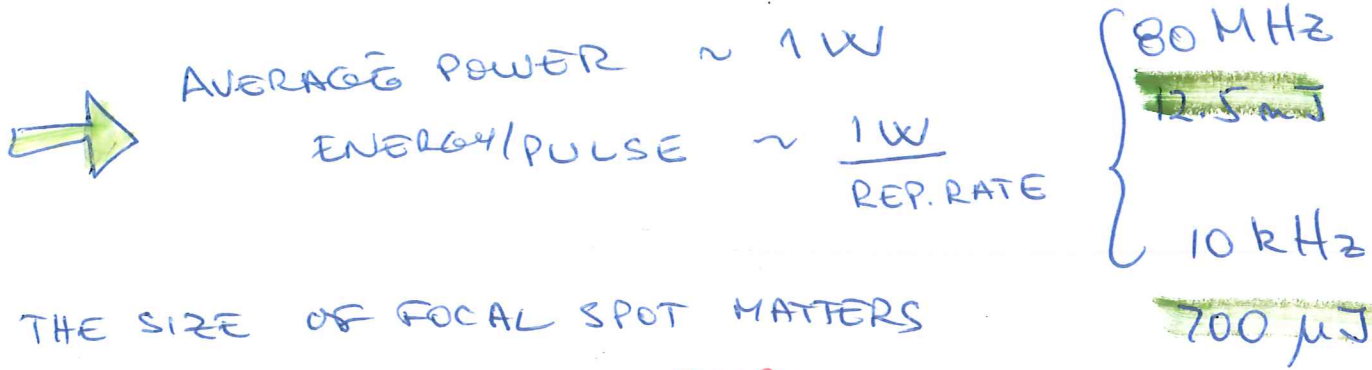 AVERAGE POWER ~ 1 W
ENERGY/PULSE ~ 1 W
REP. RATE
80 MHz
12.5 nJ
10 kHz
100 μJ
THE SIZE OF FOCAL SPOT MATTERS